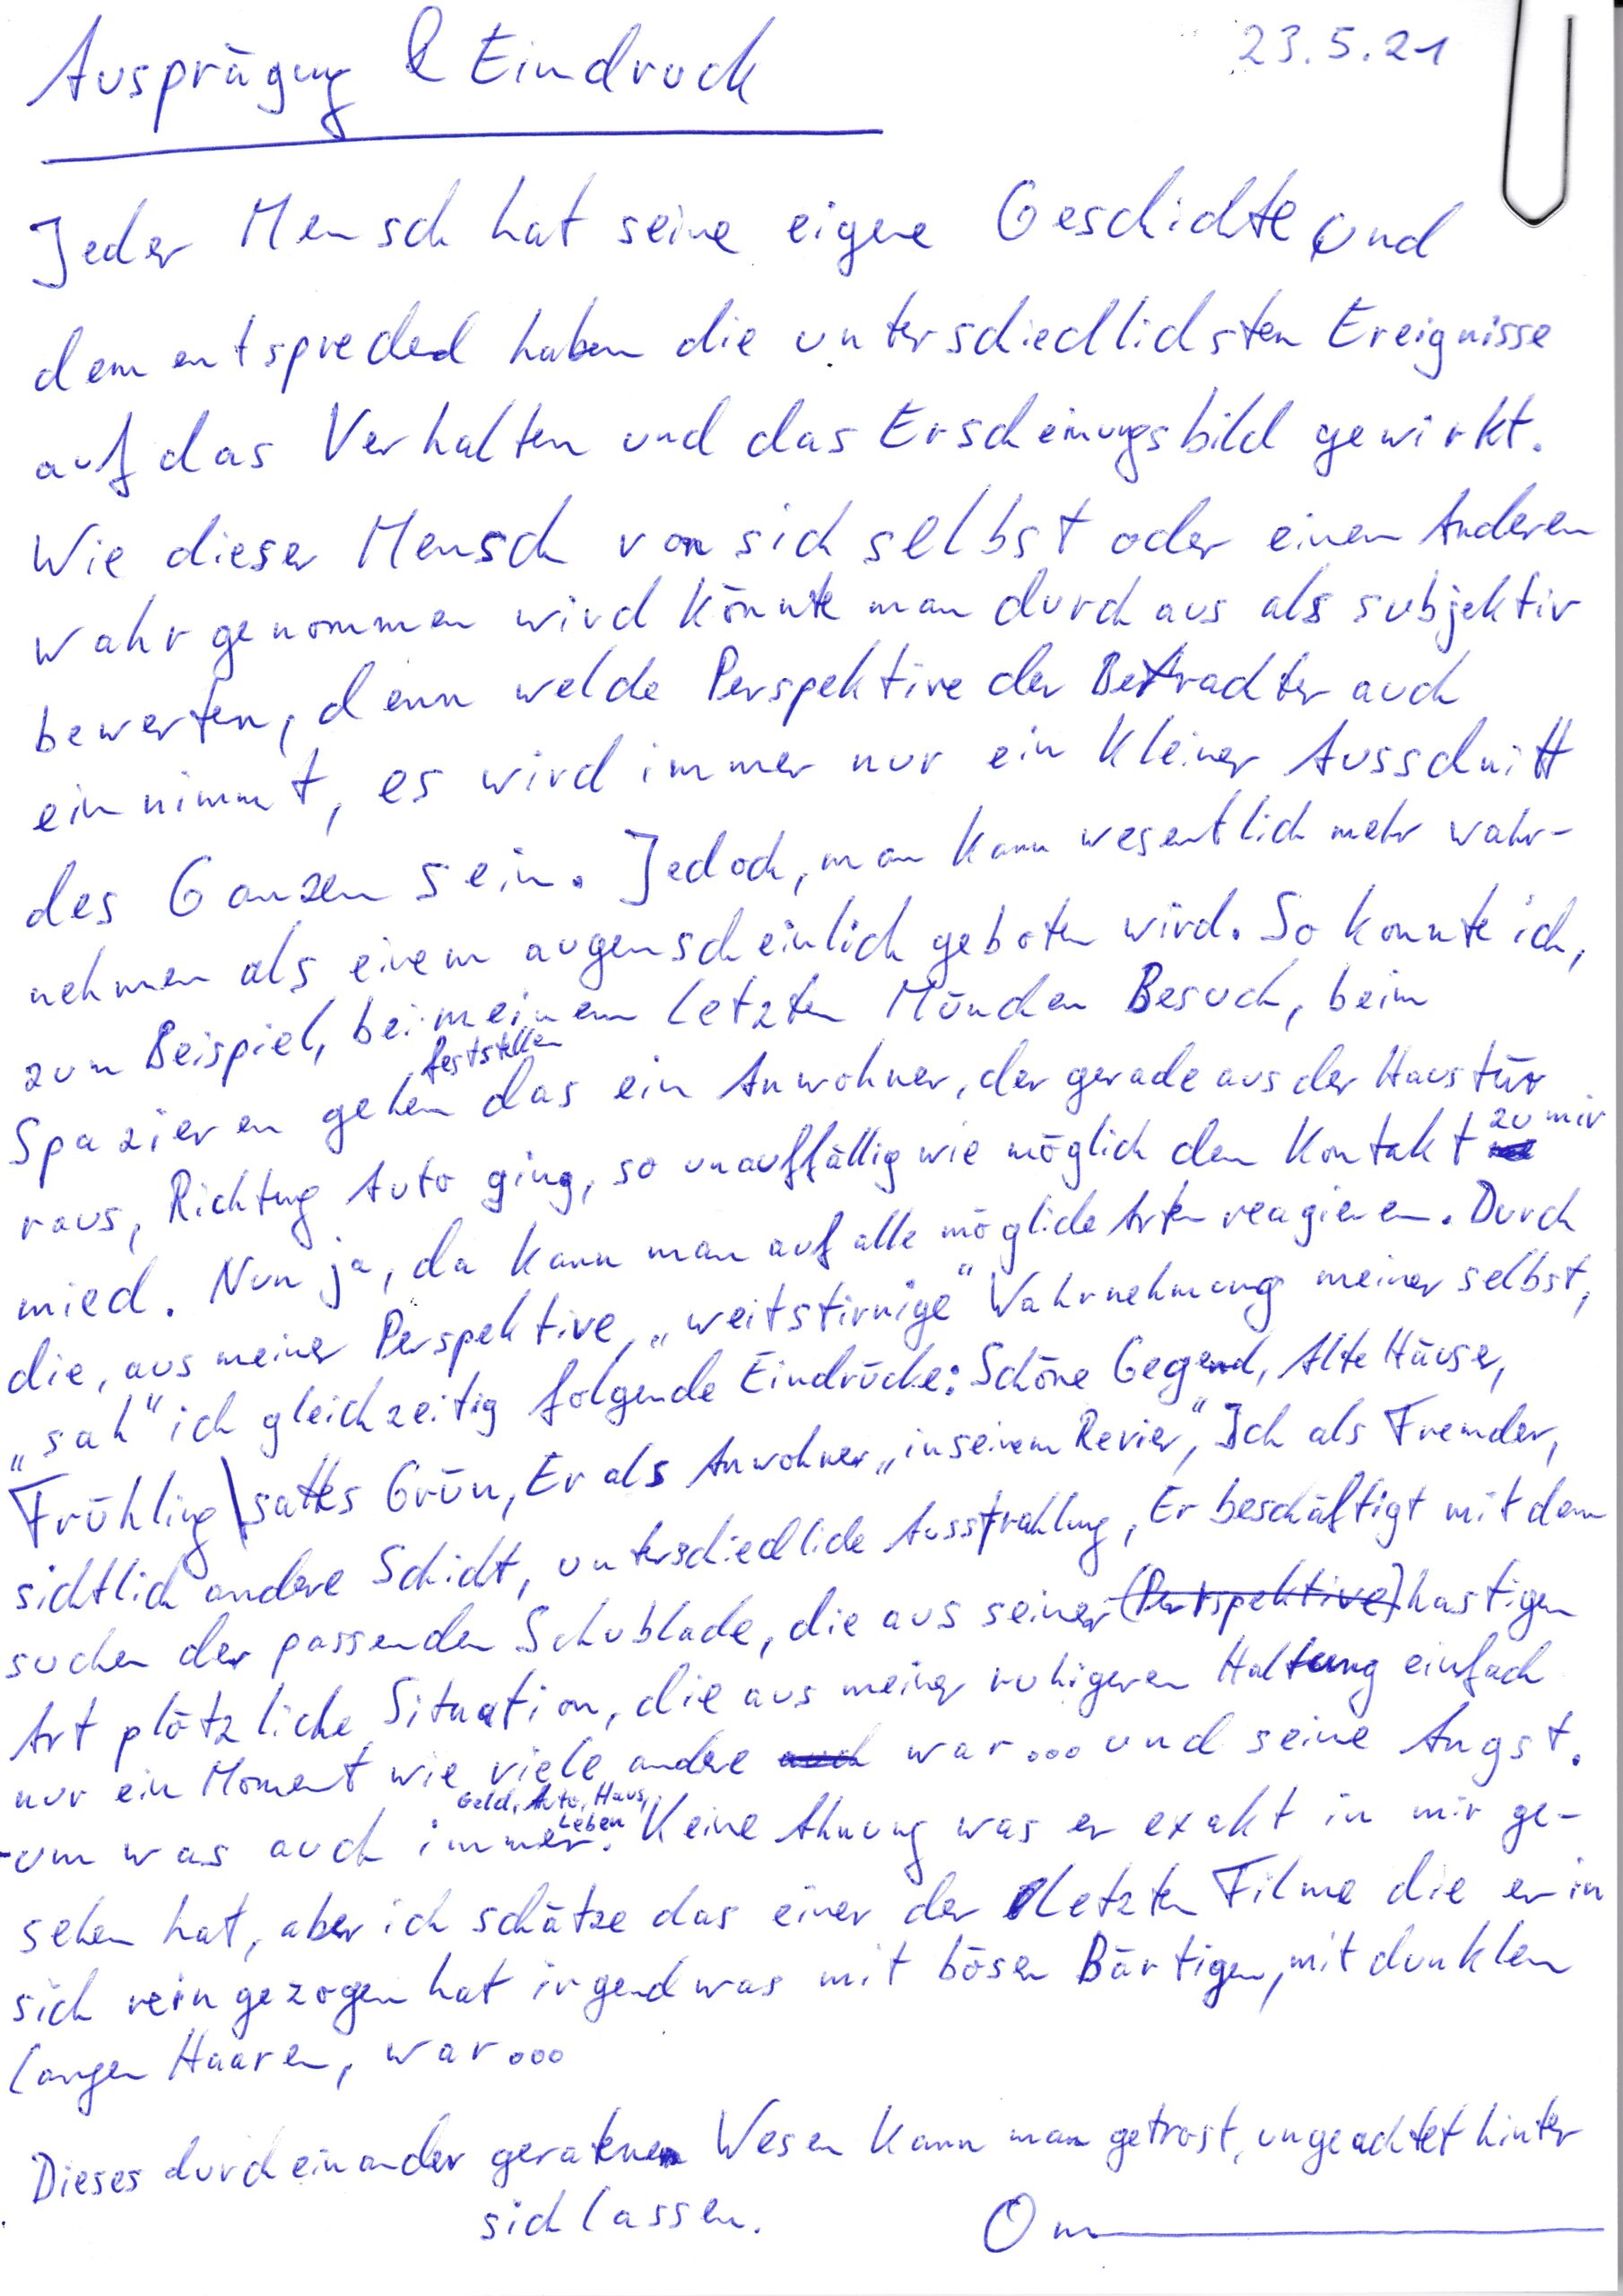 Ausprägung & Eindruck
23.5.21
Jeder Mensch hat seine eigene Geschichte und
dementsprechend haben die unterschiedlichsten Ereignisse
auf das Verhalten und das Erscheinungsbild gewirkt.
Wie dieser Mensch von sich selbst oder einem Anderen
wahrgenommen wird könnte man durchaus als subjektiv
bewerten, denn welche Perspektive der Betrachter auch
einnimmt, es wird immer nur ein kleiner Ausschnitt
des Ganzen sein. Jedoch, man kann wesentlich mehr wahr-
nehmen als einem augenscheinlich geboten wird. So konnte ich,
zum Beispiel, bei meinem letzten München Besuch, beim
Spazieren gehen feststellen das ein Anwohner, der gerade aus der Haustür
raus, Richtung Auto ging, so unauffällig wie möglich den Kontakt zu mir
mied. Nun ja, da kann man auf alle mögliche Arten reagieren. Durch
die, aus meiner Perspektive, „weitstirnige“ Wahrnehmung meiner selbst,
„sah“ ich gleichzeitig folgende Eindrücke: Schöne Gegend, Alte Häuser,
Frühling\sattes Grün, Er als Anwohner „in seinem Revier“, Ich als Fremder,
sichtlich andere Schicht, unterschiedliche Ausstrahlung, Er beschäftigt mit dem
suchen der passenden Schublade, die aus seiner (Perspektive) hastigen
Art plötzliche Situation, die aus meiner ruhigeren Haltung einfach
nur ein Moment wie viele andere auch war... und seine Angst.
-um was auch immer. Geld, Auto, Haus, Leben Keine Ahnung was er exakt in mir ge-
sehen hat, aber ich schätze das einer der letzten Filme die er in
sich reingezogen hat irgendwas mit bösen Bärtigen, mit dunklen
langen Haaren, war...
Dieses durcheinander geratene Wesen kann man getrost, ungeachtet hinter
sich lassen.
Om